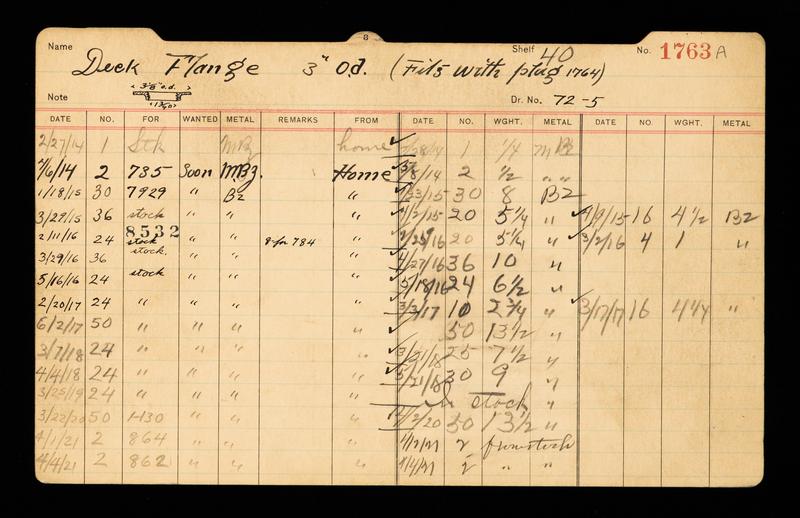 8
Name Deck Flange 3" o.d. (Fits with plug 1764) Shelf 40 No. 1763 A
3⅛" o.d.
Note Dr. No. 72-5
DATE NO. FOR WANTED METAL REMARKS FROM DATE NO. WGHT. METAL DATE NO. WGHT. METAL
2/27/14 1 Stk MBz home 1 1/4 MBz
7/6/14 2 735 Soon MBz. Home 8/14 2 1/2 " "
1/18/15 30 7929 " Bz " 30 8 Bz
3/29/15 36 stock " " " 4/2/15 20 5 1/4 " 4/9/15 16 4 1/2 Bz
2/11/16 24 8532 stock " " 8 for 784 " 2/29/16 20 5 1/4 " 3/2/16 4 1 "
3/29/16 36 stock. " " " 4/27/16 36 10 "
5/16/16 24 stock " " " 5/18/16 24 6 1/2 "
2/20/17 24 " " " " 3/3/17 10 2 3/4 " 3/17/17 16 4 1/4 "
6/2/17 50 " " " " 50 13 1/2 "
3/7/18 24 " " " " 3/21/18 25 7 1/2 "
4/4/18 24 " " " " 5/21/18 30 9 "
3/25/19 24 " " " " in stock "
3/22/20 50 1430 " " " 12/2/20 50 13 1/2 "
4/1/21 2 864 " " 4/2/21 2 from stock
4/4/21 2 862 " " " 4/4/21 2 " "